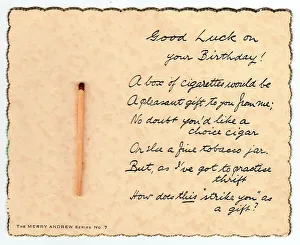 Good Luck on
your Birthday!
A box of cigarettes would be
A pleasant gift to you from me;
No doubt you'd like a
choice cigar
Or else a fine tobacco jar.
But, as I've got to practise
thrift
How does this "strike you" as
a gift?
THE MERRY ANDREW SERIES No. 7